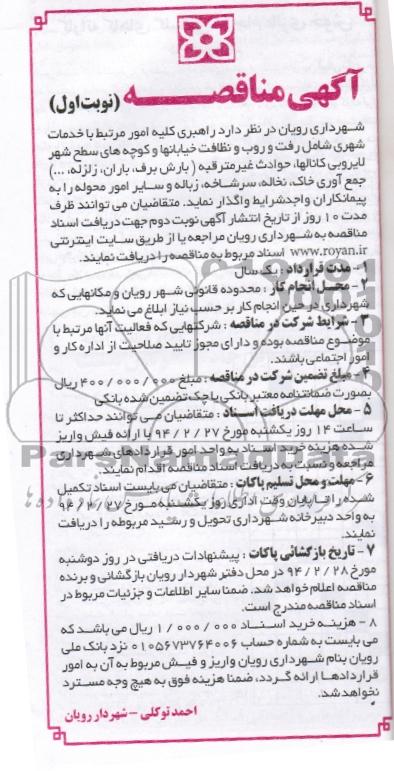 آگهی مناقصه (نوبت اول)
شهرداری رویان در نظر دارد راهبری کلیه امور مرتبط با خدمات
شهری شامل رفت و روب و نظافت خیابانها و کوچه های سطح شهر
لایروبی کانالها، حوادث غیرمترقبه (بارش برف، باران، زلزله، ...)
جمع آوری خاک، نخاله، سرشاخه، زباله و سایر امور محوله را به
پیمانکاران واجدشرایط واگذار نماید. متقاضیان می توانند ظرف
مدت ۱۰ روز از تاریخ انتشار آگهی نوبت دوم جهت دریافت اسناد
مناقصه به شهرداری رویان مراجعه یا از طریق سایت اینترنتی
www.royan.ir اسناد مربوط به مناقصه را دریافت نمایند.
۱- مدت قرارداد : یک سال
۲- محل انجام کار : محدوده قانونی شهر رویان و مکانهایی که
شهرداری در حین انجام کار بر حسب نیاز ابلاغ می نماید.
۳- شرایط شرکت در مناقصه : شرکتهایی که فعالیت آنها مرتبط با
موضوع مناقصه بوده و دارای مجوز تایید صلاحیت از اداره کار و
امور اجتماعی باشند.
۴- مبلغ تضمین شرکت در مناقصه : مبلغ ۴۰۰/۰۰۰/۰۰۰ ریال
بصورت ضمانتنامه معتبر بانکی یا چک تضمین شده بانکی
۵- محل مهلت دریافت اسناد : متقاضیان می توانند حداکثر تا
ساعت ۱۴ روز یکشنبه مورخ ۹۴/۲/۲۷ با ارائه فیش واریز
شده هزینه خرید اسناد به واحد امور قراردادهای شهرداری
مراجعه و نسبت به دریافت اسناد مناقصه اقدام نمایند.
۶- مهلت و محل تسلیم پاکات : متقاضیان می بایست اسناد تکمیل
شده را تا پایان وقت اداری روز یکشنبه مورخ ۹۴/۲/۲۷
به واحد دبیرخانه شهرداری تحویل و رسید مربوطه را دریافت
نمایند.
۷- تاریخ بازگشائی پاکات : پیشنهادات دریافتی در روز دوشنبه
مورخ ۹۴/۲/۲۸ در محل دفتر شهردار رویان بازگشائی و برنده
مناقصه اعلام خواهد شد. ضمنا سایر اطلاعات و جزئیات مربوط در
اسناد مناقصه مندرج است.
۸- هزینه خرید اسناد ۱/۰۰۰/۰۰۰ ریال می باشد که
می بایست به شماره حساب ۰۱۰۵۶۷۳۷۶۴۰۰۶ نزد بانک ملی
رویان بنام شهرداری رویان واریز و فیش مربوط به آن به امور
قراردادها ارائه گردد، ضمنا هزینه فوق به هیچ وجه مسترد
نخواهد شد.
احمد توکلی - شهردار رویان